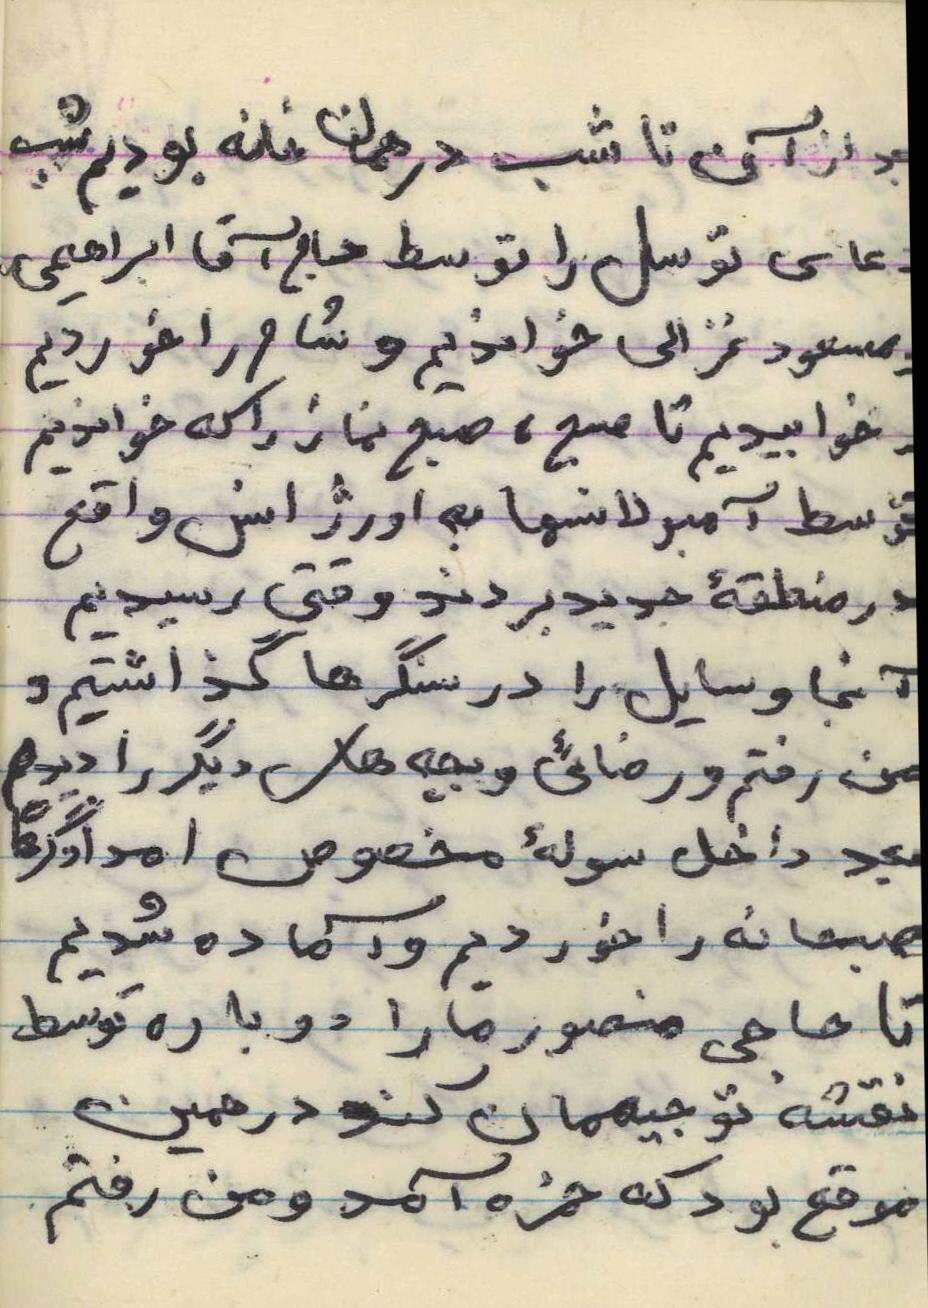 بعد از آن تا شب در همان خانه بودیم شب
دعای توسل را توسط حاج آقا ابراهیمی
و مسعود غزالی خواندیم و شام را خوردیم
و خوابیدیم تا صبح، صبح نماز را که خواندیم
توسط آمبولانسها به اورژانس واقع
در منطقهٔ جدید بردند وقتی رسیدیم
آنجا وسایل را در سنگرها گذاشتیم و
من رفتم و رضائی و بچه های دیگر را دیدم
بعد داخل سولهٔ مخصوص امدادگرها
صبحانه را خوردیم و آماده شدیم
تا حاجی منصور ما را دوباره توسط
نقشه توجیهمان کند در همین
موقع بود که حمزه آمد و من رفتم